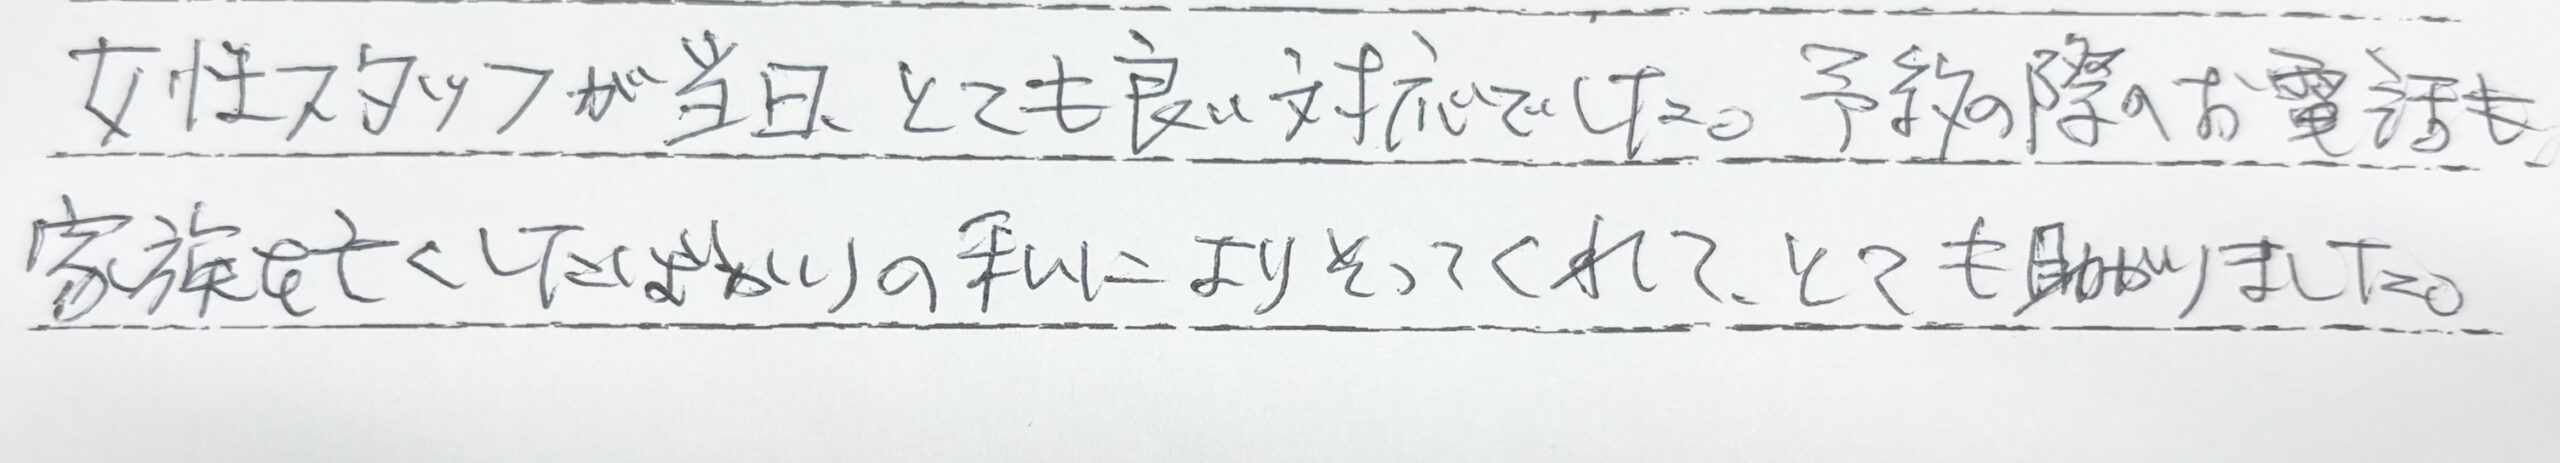 女性スタッフが当日、とても良い対応でした。予約の際のお電話も、
家族を亡くしたばかりの私によりそってくれて、とても助かりました。